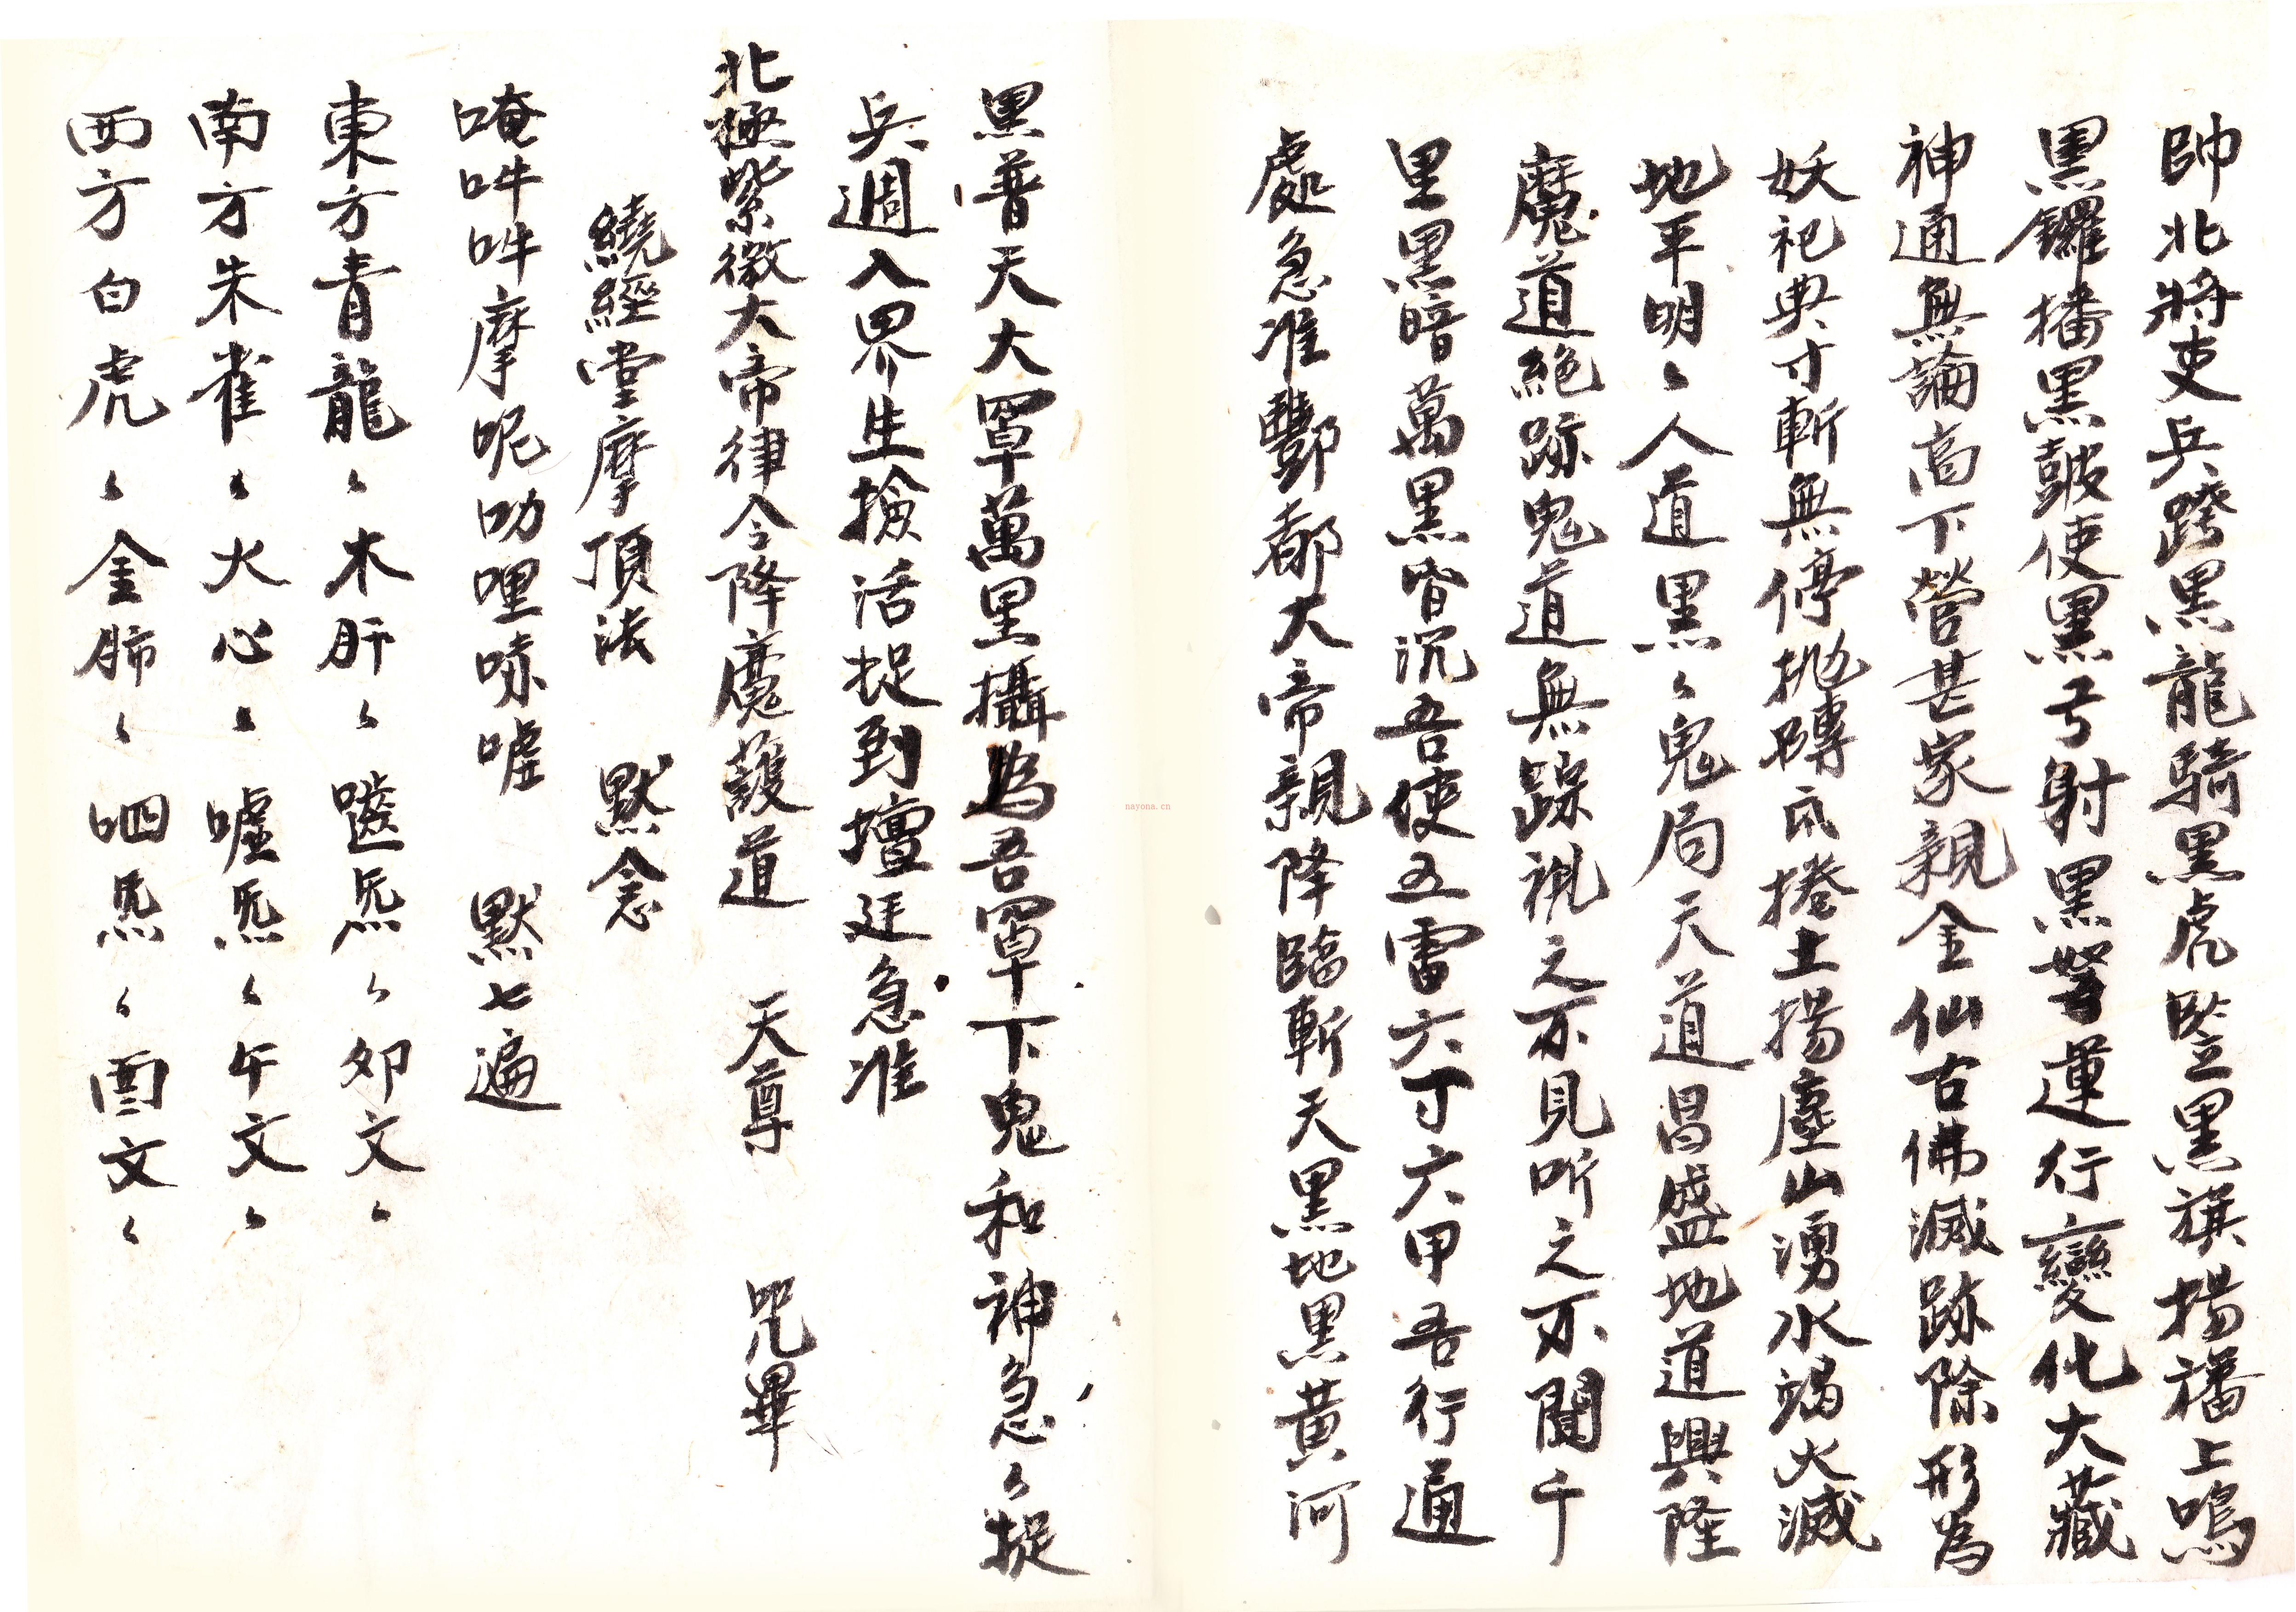 帥北將吏兵跨黑龍騎黑虎竪黑旗揚旛上鳴
黑鑼播黑皷使黑弓射黑弩運行變化大藏
神通無論高下營甚家親金仙古佛滅跡除形為
妖祀典寸斬無停拋磚瓦捲土揚塵山湧水竭火滅
地平明〻人道黑〻鬼局天道昌盛地道興隆
魔道絕跡鬼道無踪視之不見听之不聞千
里黑暗萬黑皆沉吾使五雷六丁六甲吾行通
處急准酆都大帝親降臨斬天黑地黑黃河
黑普天大罩萬里攝為吾罩下鬼和神急〻捉
兵週入界生擒活捉到壇廷急准
北極紫微大帝律令降魔護道 天尊 咒畢
繞經堂摩頂法 默念
唵吽吽摩呢叻哩㖶嘘 默七遍
東方青龍〻木肝〻噬炁〻夘文〻
南方朱雀〻火心〻嘘炁〻午文〻
西方白虎〻金肺〻呬炁〻酉文〻
nayona.cn